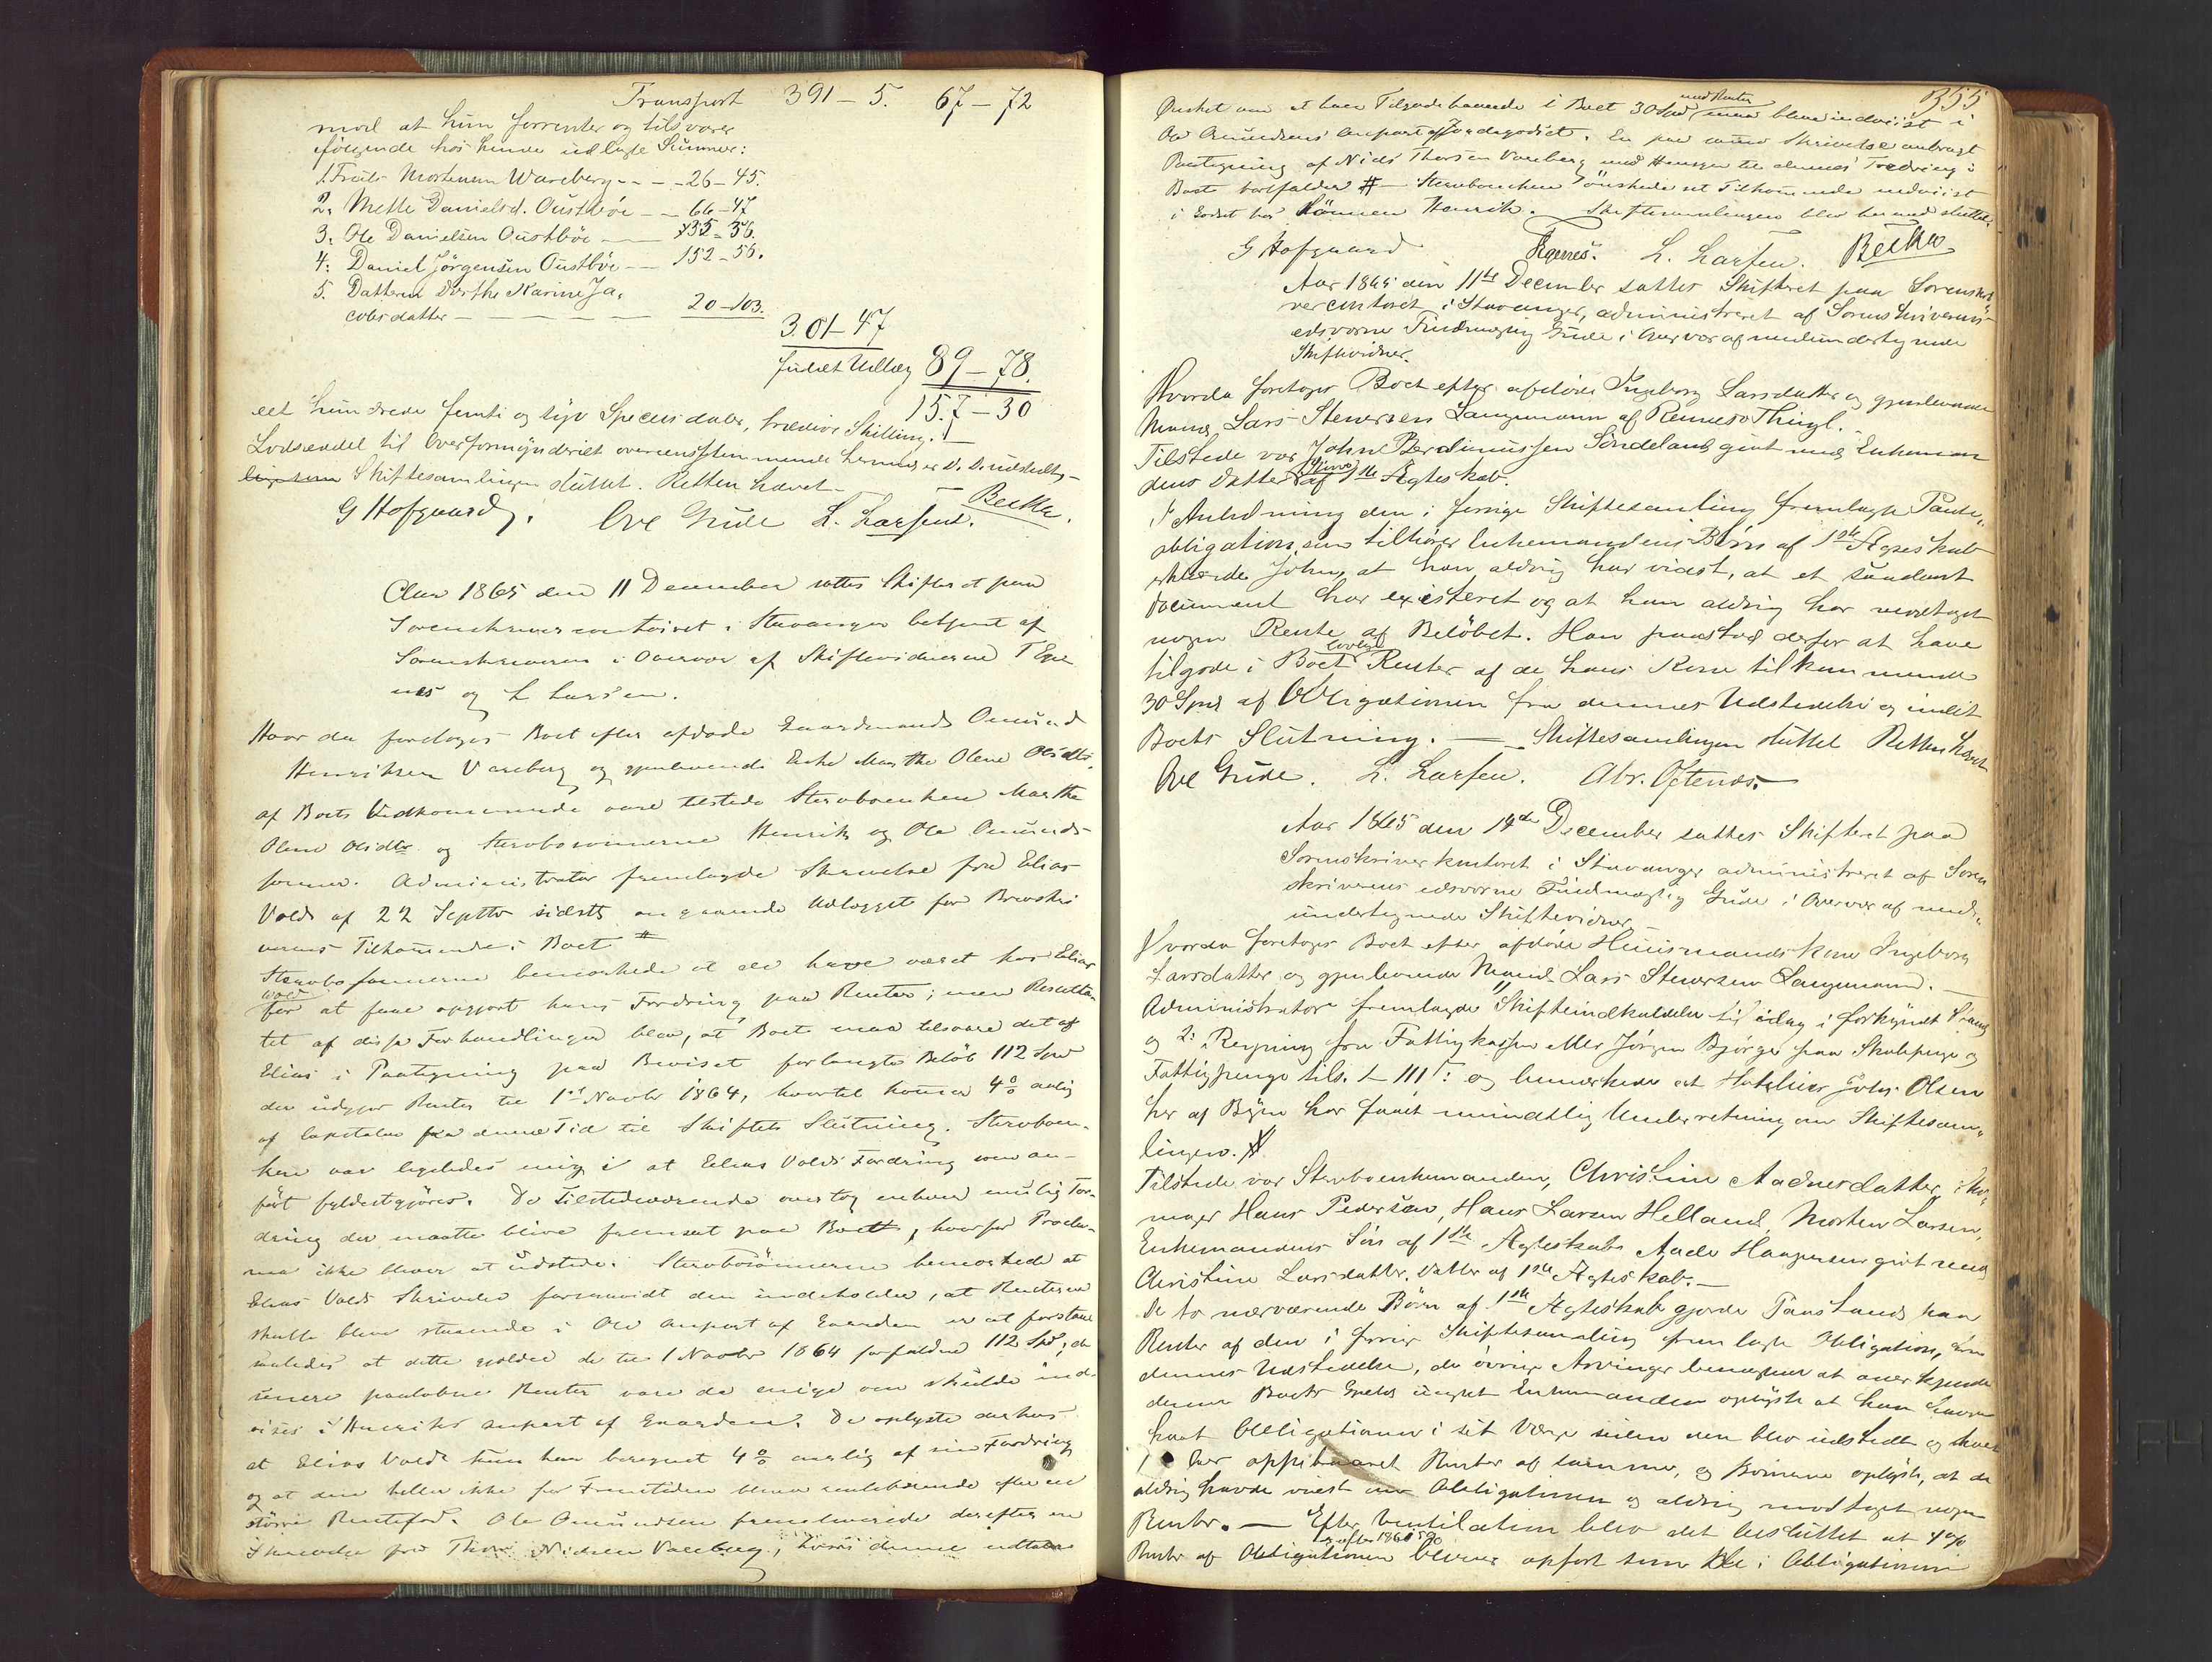 Transport 391 – 5. 67 – 72
mod at hun forrenter og tilsvarer
følgende hos hende udlagte Summer:
1. Enits Mortensen Wareberg – – – 26 – 45.
2. Mette Danielsd. Oustbøe – – 66 – 47
3. Ole Danielsen Oustbøe – – 35 – 36.
4: Daniel Jørgensen Oustbøe – – 152 – 56.
5. Datteren Dorthe Karine Ja-
cobsdatter – – – – – 20 – 103.
301 – 47
Udlæg 89 – 78.
157 – 30
eet hundrede femti og syv Speciesdaler, tredive Skilling.
Lodseddel til Overformynderiet overeensstemmende hermed er D. D. udstedt,
Skiftesamlingen sluttet. Retten hævet –
G Hofgaard. Ove Gude L. Larsen. Becker.
Aar 1865 den 11 December sattes Skifteret paa
Sorenskrivercontoiret i Stavanger betjent af
Sorenskriveren i Overvær af Skiftevidnerne T Ege
næs og L Larsen.
Hvor da foretoges Boet efter afdøde Gaardmand Omund
Henriksen Vareberg og gjenlevende Enke Marthe Olene Olsdtr.
af Boets Vedkommende vare tilstede Stervboenken Marthe
Olene Olsdtr og Stervbosønnerne Henrik og Ole Omunds-
sønner. Administrator fremlagde Skrivelse fra Elias
Vold af 22 Septbr sidste angaaende Udlægget for
Tilkommende i Boet #
Stervbosønnerne bemærkede at de have været hos Elias
Vold
for at faae opgjort hans Fordring paa Renter; men Resulta-
tet af disse Forhandlinger blev, at Boet maa tilsvare det af
Elias i Paategning paa Beviset forlangte Beløb 112 Spd
der udgjør Renter til 1st Novbr 1864, hvortil kommer 4% aarlig
af Capitalen fra denne Tid til Skiftets Slutning. Stervboen-
ken var ligeledes enig i at Elias Volds Fordring som an-
ført fyldestgjøres. De Tilstedeværende overtog enhver mulig For-
dring der maatte blive fremsat paa Boet, hvorfor Procla-
ma ikke bliver at udstede. Stervbosønnerne bemærkede at
Elias Volds Skrivelse forsaavidt den indeholder, at Renterne
skulle blive staaende i Ole Anpart af Gaarden er at forstaae
saaledes at dette gjælder de til 1 Novbr 1864 forfaldne 112 Spd, de
senere paaløbne Renter vare de enige om skulde ind-
vises i Henriks Anpart af Gaarden. De oplyste derhos
at Elias Vold kun har beregnet 4% aarlig af sin Fordring
og at den heller ikke for Fremtiden bliver efter en
større Rentefod. Ole Omundsen fremleverede derefter en
Skrivelse fra Thor Nielsen Vareberg, hvori denne udtaler
355
med Renter
Ønsket om at hans Tilgodehavende i Boet 30 Spd maa blive indviist i
Ole Omundsens Anpart af Jordegodset. En paa samme Skrivelse anbragt
Paategning af Niels Thorsen Vareberg med Hensyn til dennes Fordring i
Boet bortfalder # Stervboenken ønskede sit Tilkommende indviist
i Godset hos Sønnen Henrik. – Skiftesamlingen blev hermed sluttet.
G Hofgaard Egenæs. L. Larsen. Becker
Aar 1865 den 11te December sattes Skifteret paa Sorenskri-
vercontoret i Stavanger, administreret af Sorenskriverens
edsvorne Fuldmægtig Gude i Overvær af medundertegnede
Skiftevidner.
Hvorda foretoges Boet efter afdøde Ingeborg Larsdatter og gjenlevende
Mand, Lars Stenersen Langemann af Rennesø Thingl.
Tilstede var John Berdinussen Sondeland gift med Enkeman-
dens Datter af 1ste Ægteskab.
I Anledning den i forrige Skiftesamling fremlagte Pante-
obligation, som tilhører Enkemandens Børn af 1ste Ægteskab
erklærede John, at han aldrig har vidst, at et saadant
Document har existeret og at han aldrig har modtaget
nogen Rente af Beløbet. Han paastod derfor at have
tilgode i Boet lovlige Renter af de hans Kone tilkommende
30 Spd af Obligationen fra dennes Udstedelse og indtil
Boets Slutning. – Skiftesamlingen sluttet Retten hævet
Ove Gude. L. Larsen. Abr. Oftenæs.
Aar 1865 den 14de December sattes Skifteret paa
Sorenskriverkontoret i Stavanger administreret af Soren-
skriverens edsvorne Fuldmægtig Gude i Overvær af med-
undertegnede Skiftevidner
Hvorda foretoges Boet efter afdøde Huusmandskone Ingeborg
Larsdatter og gjenlevende Mand Lars Stenersen Langemann. –
Administrator fremlagde Skifteindkaldelse til idag i forkyndt Stand
og 2: Regning fra Fattigkassen eller Jørgen Bjørge paa Skolepenge og
Fattigpenge tils. 1 – 111 ß: og bemærkede at Høkker Johs Olsen
her af Byen har faaet mundtlig Underretning om Skiftesam-
lingen. #
Tilstede var Stervboenkemanden, Christine Aadnesdatter,
Hans Pedersen, Hans Larsen Helland, Morten Larsen,
Enkemandens Søn af 1ste Ægteskab Aade Haagensen gift med
Christine Larsdatter, Datter af 1ste Ægteskab. –
De to nærværende Børn af 1ste Ægteskab gjorde Paastand paa
Renter af den i forrige Skiftesamling fremlagte Obligation, fra
dennes Udstedelse, de øvrige Arvinger benægtede at anerkjende
denne Boets Gjeld Enkemanden oplyste at han havde
havt Obligationen i sit Værge siden den blev udstedt og
har oppebaaret Renter af samme, og Børnene oplyste, at de
aldrig havde vidst om Obligationen og aldrig modtaget nogen
Renter. – Efter Ventilation blev det besluttet at 4%
Renter af Obligationen bliver opført som de i Obligationen